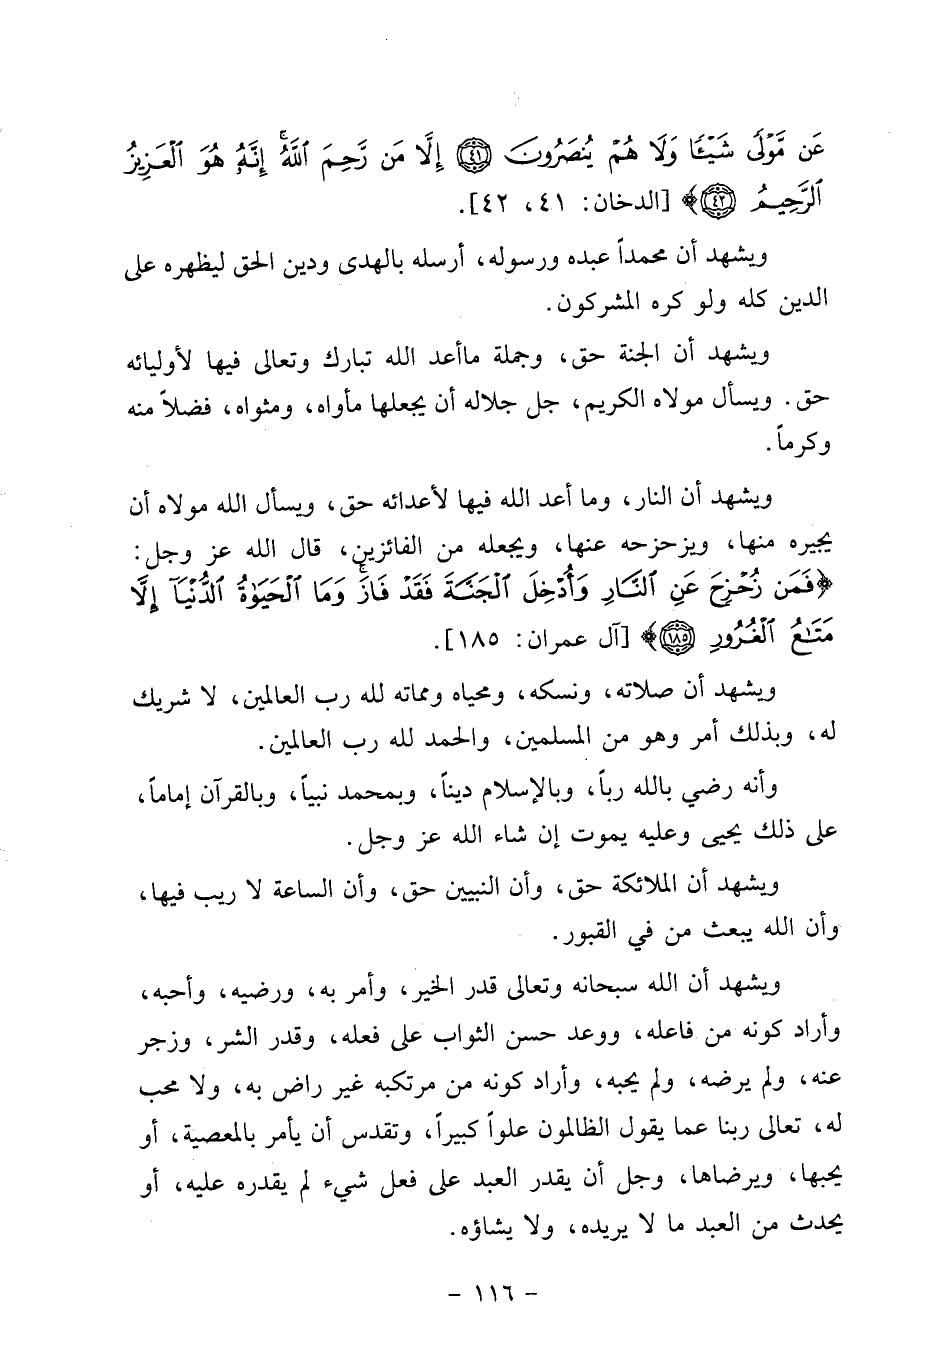 عَن مَّوْلًى شَيْـًٔا وَلَا هُمْ يُنصَرُونَ ﴿٤١﴾ إِلَّا مَن رَّحِمَ ٱللَّهُ ۚ إِنَّهُۥ هُوَ ٱلْعَزِيزُ
ٱلرَّحِيمُ ﴿٤٢﴾﴾ [الدخان: ٤١، ٤٢].
ويشهد أن محمداً عبده ورسوله، أرسله بالهدى ودين الحق ليظهره على
الدين كله ولو كره المشركون.
ويشهد أن الجنة حق، وجملة ماأعد الله تبارك وتعالى فيها لأوليائه
حق. ويسأل مولاه الكريم، جل جلاله أن يجعلها مأواه، ومثواه، فضلاً منه
وكرماً.
ويشهد أن النار، وما أعد الله فيها لأعدائه حق، ويسأل الله مولاه أن
يجيره منها، ويزحزحه عنها، ويجعله من الفائزين، قال الله عز وجل:
﴿فَمَن زُحْزِحَ عَنِ ٱلنَّارِ وَأُدْخِلَ ٱلْجَنَّةَ فَقَدْ فَازَ ۗ وَمَا ٱلْحَيَوٰةُ ٱلدُّنْيَآ إِلَّا
مَتَـٰعُ ٱلْغُرُورِ ﴿١٨٥﴾﴾ [آل عمران: ١٨٥].
ويشهد أن صلاته، ونسكه، ومحياه ومماته لله رب العالمين، لا شريك
له، وبذلك أمر وهو من المسلمين، والحمد لله رب العالمين.
وأنه رضي بالله رباً، وبالإسلام ديناً، وبمحمد نبياً، وبالقرآن إماماً،
على ذلك يحيى وعليه يموت إن شاء الله عز وجل.
ويشهد أن الملائكة حق، وأن النبيين حق، وأن الساعة لا ريب فيها،
وأن الله يبعث من في القبور.
ويشهد أن الله سبحانه وتعالى قدر الخير، وأمر به، ورضيه، وأحبه،
وأراد كونه من فاعله، ووعد حسن الثواب على فعله، وقدر الشر، وزجر
عنه، ولم يرضه، ولم يحبه، وأراد كونه من مرتكبه غير راض به، ولا محب
له، تعالى ربنا عما يقول الظالمون علواً كبيراً، وتقدس أن يأمر بالمعصية، أو
يحبها، ويرضاها، وجل أن يقدر العبد على فعل شيء لم يقدره عليه، أو
يحدث من العبد ما لا يريده، ولا يشاؤه.
- ١١٦ -